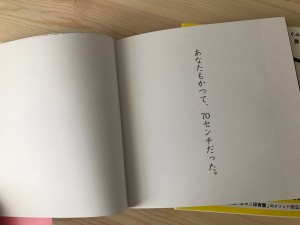 あなたもかつて、
70センチだった。